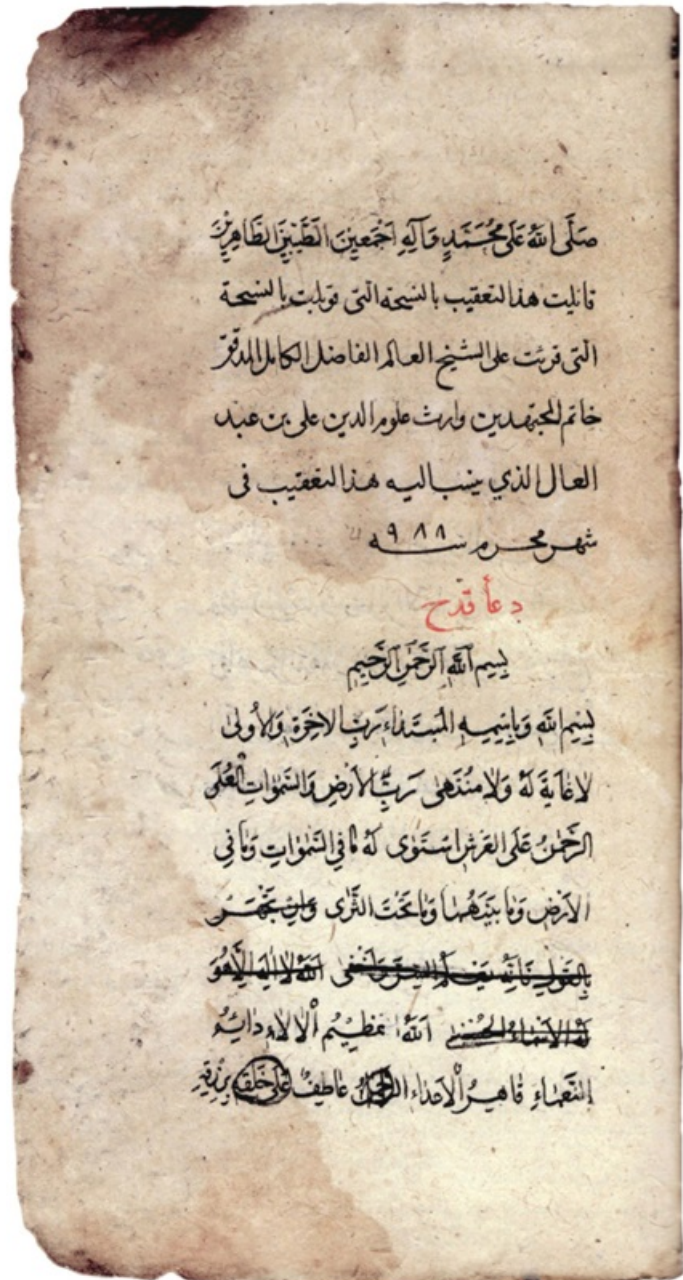 صَلَّى اللهُ عَلَى مُحَمَّدٍ وَآلِهِ اَجْمَعِينَ الطَّيِّبِينَ الطَّاهِرِينَ
قابلت هذا التعقيب بالنسخة التي قوبلت بالنسخة
التي قرئت على الشيخ العالم الفاضل الكامل المدقق
خاتم المجتهدين وارث علوم الدين علي بن عبد
العال الذي ينسب اليه هذا التعقيب في
شهر محرم سنه ٩٨٨
دعأ قدح
بِسْمِ اللهِ الرَّحْمٰنِ الرَّحِيمِ
بِسْمِ اللهِ وَبِاسْمِهِ المُبْتَدَاءِ رَبِّ الاخِرَةِ وَالأُولىٰ
لاغَايَةَ لَهُ وَلا مُنْتَهىٰ رَبِّ الاَرْضِ وَالسَّمٰوَاتِ الْعُلىٰ
الرَّحْمٰنُ عَلَى العَرْشِ اسْتَوٰى لَهُ مَا فِي السَّمٰوَاتِ وَمَا فِي
الاَرْضِ وَمَا بَيْنَهُمَا وَمَا تَحْتَ الثَّرٰى وَاِنْ تَجْهَرْ
بِالقَولِ فَاِنَّهُ يَعْلَمُ السِّرَّ وَاَخْفىٰ اللهُ لا اِلٰهَ اِلَّا هُوَ
لَهُ الاَسْمَاءُ الْحُسْنىٰ اَللهُ عَظِيمُ الْالاءِ دَائِمُ
النَّعْمَاءِ قَاهِرُ الْاَعْدَاءِ عَاطِفٌ عَلىٰ خَلْقِهِ بِرِزْقِهِ